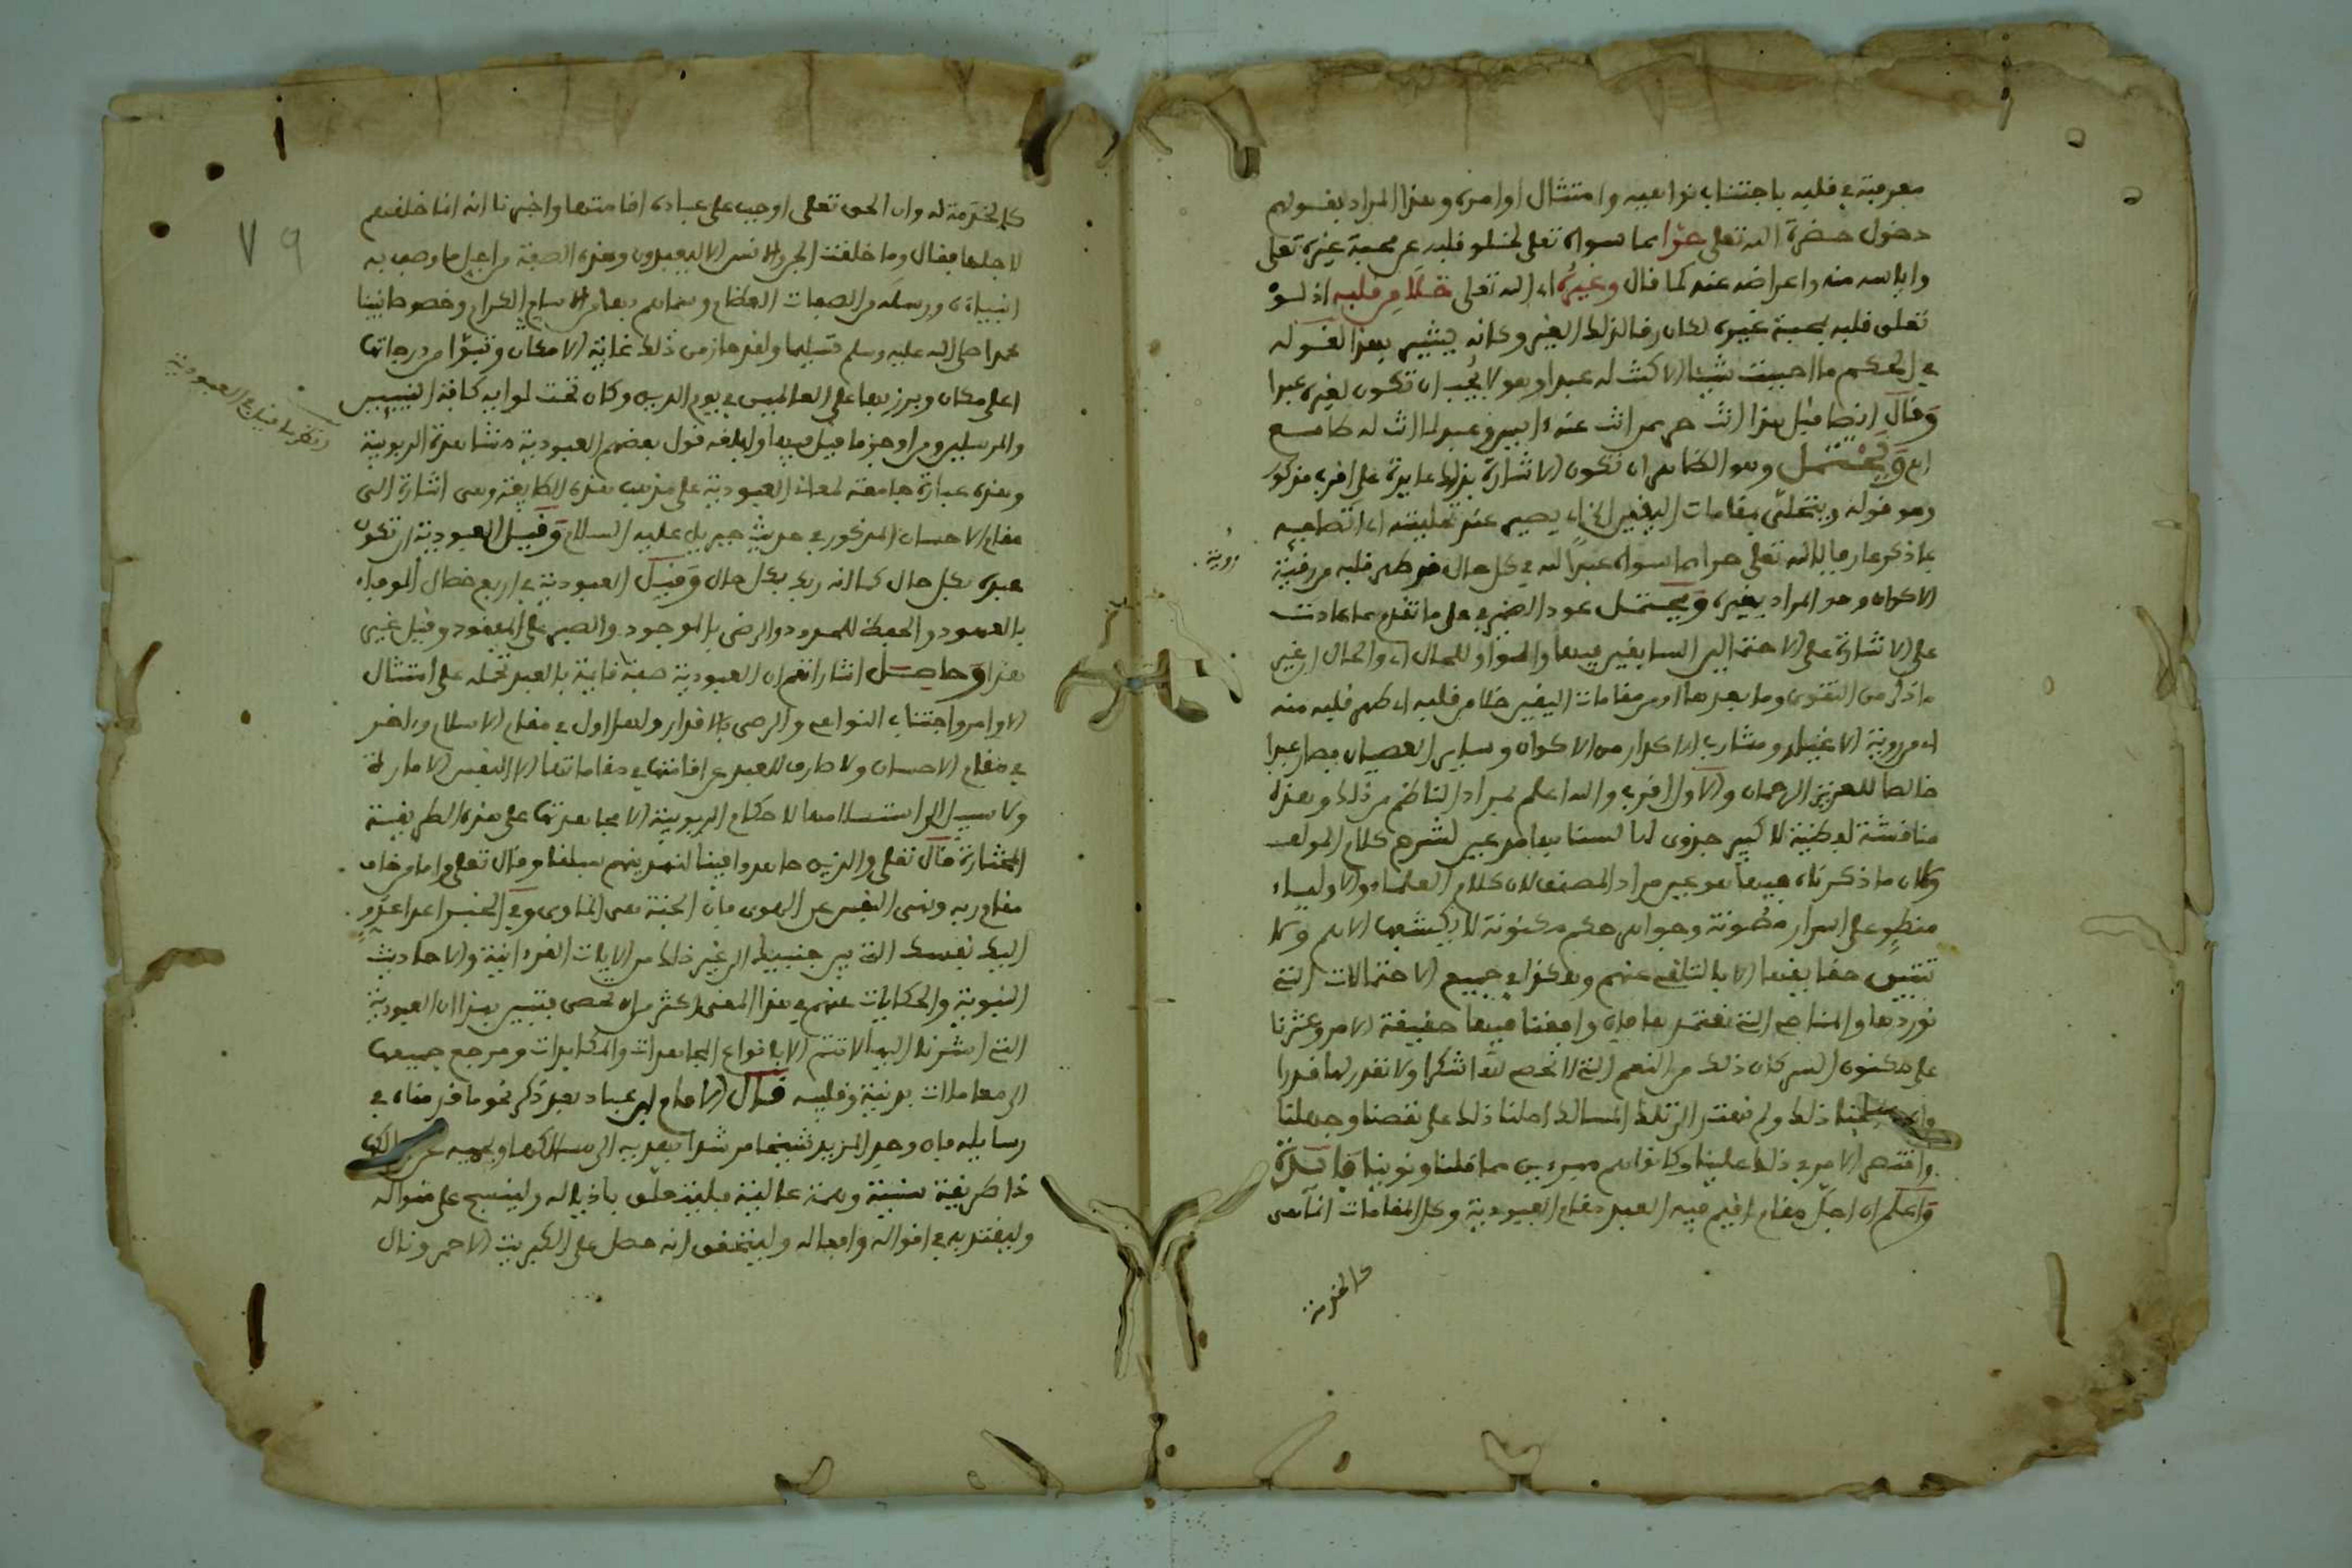 معرفته في قلبه باجتناب نواهيه وامتثال اوامره وهذا المراد بقولهم
دخول حضرة الله تعلى حرّا مما سواه تعلى لخلو قلبه عن محبة غيره تعلى
واياسه منه واعراضه عنه كما قال وغيرُه اى الله تعلى خَلَا من قلبه اذ لوْ
تعلق قلبه بمحبة غيره لكان رقا لذلك الغير وكانه يشير بهذا لقوله
في الحكم ما احببت شيئا الا كنت له عبدا وهو لا يُحب ان تكون لغيره عبدا
وَقال ايضا قبل هذا انت حر مما انت عنه ءايس وعبد لما انت له طامع
اه وَيحْتمل وهو الظاهر ان تكون الاشارة بذلك عايدة على اقرب مذكور
وهو قوله ويتحلى بمقامات اليقين الخ اى يصير عند تحليته اى اتصافه
بما ذكر عارفا بالله تعلى حرا مما سواه عبدًا لله في كل حال قد طهر قلبه من رقية
الاكوان وهو المراد بغيره وَيحتمل عود الضمير على ما تقدم مما عادت
على الاشارة على الاحتمالين السابقين فيهما والواو للحال اى والحال ان غير
ما ذكر من التقوى وما بعدها او من مقامات اليقين خلا من قلبه اى طهر قلبه منه
اى من روية الاغيار ومشارب الاكدار من الاكوان وساير العصيان فصار عبدا
خالصا للعزيز الرحمان والاول اقرب والله اعلم بمراد الناظم من ذلك وهذه
مناقشة لفظية لا كبير جدوى لها لسنا بها مدعين لشرح كلام المولف
وكان ما ذكرناه فيها هو عين مراد المصنف لان كلام العلماء والاولياء
منطوٍ على اسرار مصونة وجواهر حكم مكنونة لا يكشفها الا هم ولا
تتبين حقايقها الا بالتلقي عنهم وهكذا في جميع الاحتمالات التي
نوردها والمناحى التي نعتمدها فان وافقنا فيها حقيقة الامر وعثرنا
على مكنون السر كان ذلك من النعم التي لا نحصى لها شكرا ولا نقدر لها قدرا
وان ذلك ولم نهتد الى تلك المسالك احلنا ذلك على نقصنا وجهلنا
واقتصر الامر في ذلك علينا وكانوا هم مبرءين مما قلنا ونوينا فَايدة
وَاعلم ان اجلّ مقام اقيم فيه العبد مقام العبودية وكل المقامات انما هي
كالخدمة
روية
كالخدمة له وان الحق تعلى اوجب على عباده اقامتها واخبرنا انه انما خلقهم
لاجلها فقال وما خلقت الجن والانس الا ليعبدون وهذه الصفة من اجل ما وصف به
انبياءه ورسله من الصفات العظام وسماهم بها من الاسامى الكرام وخصوصا نبينا
محمدا صلى الله عليه وسلم تسليما ولقد حاز من ذلك غاية الامكان وتبوّا من درجاتها
اعلى مكان وبرز بها على العالمين في يوم الدين وكان تحت لوايه كافة النبيين
والمرسلين ومن اوجز ما قيل فيها واولقه قول بعضهم العبودية مشاهدة الربوبية
وهذه عبارة جامعة لمعانى العبودية على مذهب هذه الطايفة وهى اشارة الى
مقام الاحسان المذكور في حديث جبريل عليه السلام وَقيل العبودية ان تكون
عبده بكل حال كما انه ربك بكل حال وَقيل العبودية في اربع خصال الوفاء
بالعهود والحفظ للحدود والرضى بالموجود والصبر على المفقود وقيل غير
هذا وَحاصل اشاراتهم ان العبودية صفة قايمة بالعبد تحمله على امتثال
الاوامر واجتناب النواهى والرضى بالاقدار ولهذا اول في مقام الاسلام وءاخر
في مقام الاحسان ولا صارف للعبد عن اقامتها في مقاماتها الا النفس الامارة
ولا سبيل الى استسلامها لاحكام الربوبية الا مجاهدتها على هذه الطريقة
المختارة قال تعلى والذين جاهدوا فينا لنهدينهم سبلنا وقال تعلى واما من خاف
مقام ربه ونهى النفس عن الهوى فان الجنة هى الماوى وفي الخبر اعدا عدوٍ
اليك نفسك التي بين جنبيك الى غير ذلك من الايات القرءانية والاحاديث
النبوية والحكايات عنهم في هذا المعنى اكثر من ان تحصى فتبين بهذا ان العبودية
التي اشرنا اليها لا تتم الا بانواع المجاهدات والمكابدات ومرجع جميعها
الى معاملات بدنية وقلبية قال الامام ابن عباد بعد ذكر نحو ما قدمناه في
رسايله فان وجد المريد شيخا مرشدا يهديه الى مسالكها ويحميه عن
ذا طريقة سنية وهمة عالية فليتعلق باذياله ولينسج على منواله
وليقتد به في اقواله وافعاله وليتحقق انه حصل على الكبريت الاحمر ونال
ما قيل في العبودية
٧٩